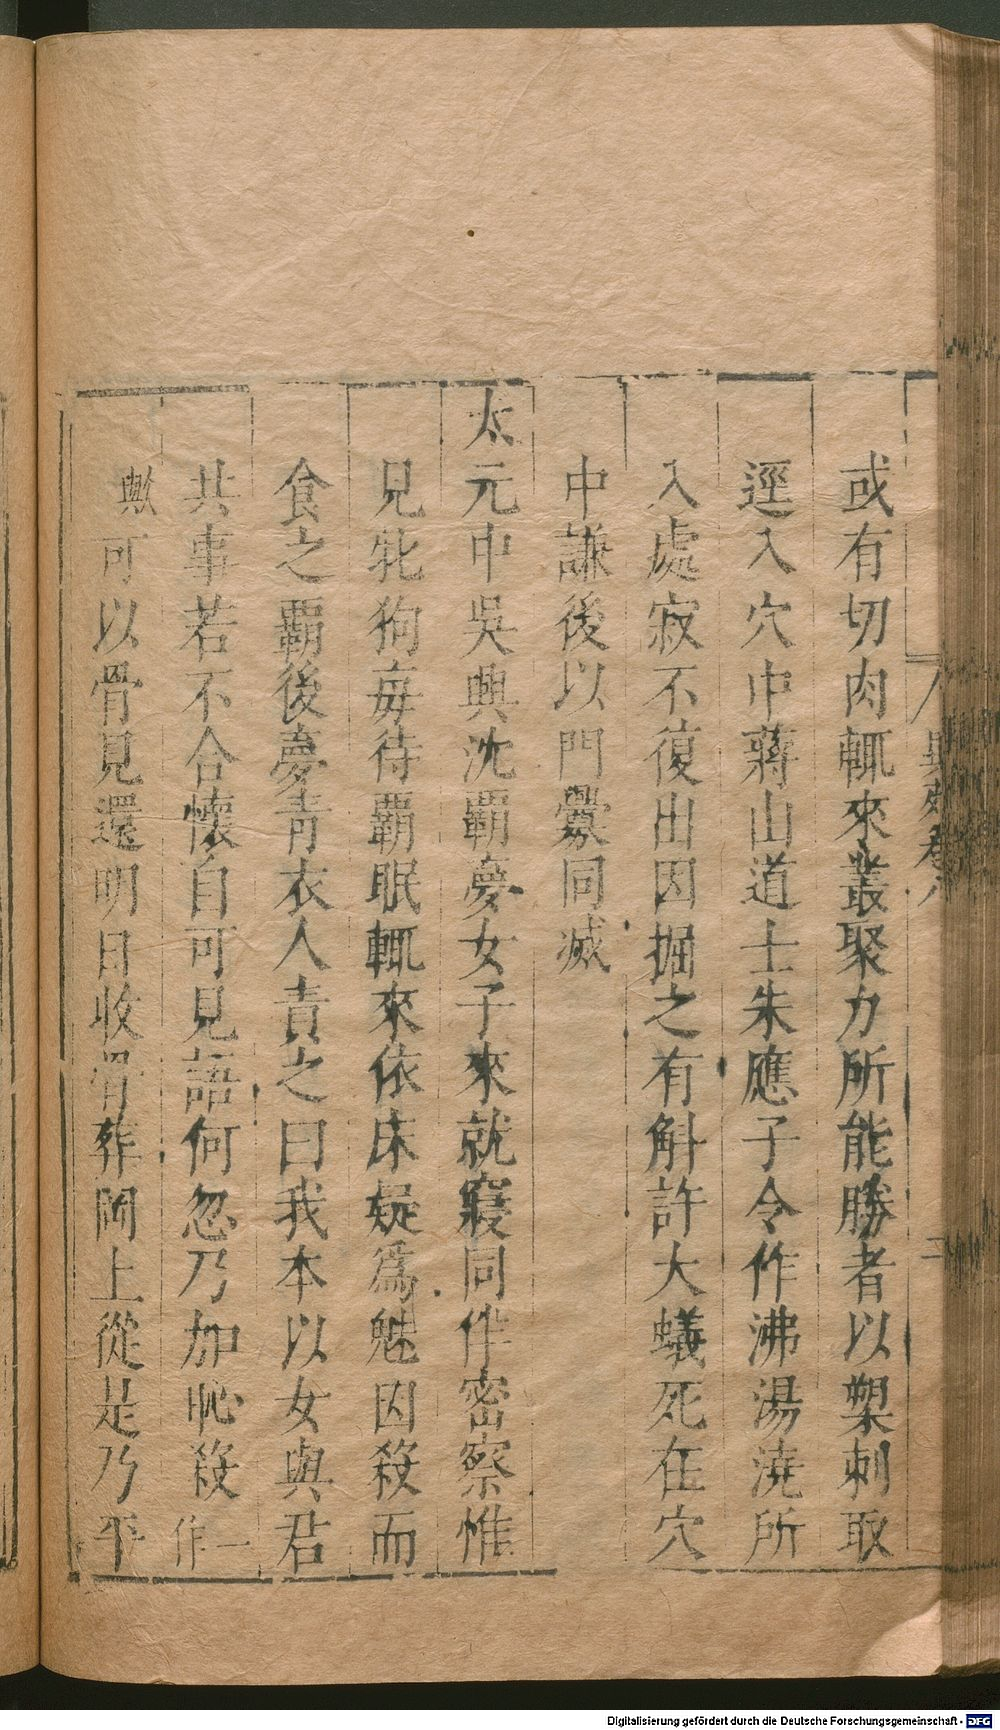 或有切肉輒來叢聚力所能勝者以槊刺取
逕入穴中蔣山道士朱應子令作沸湯澆所
入處寂不復出因掘之有斛許大蟻死在穴
中謙後以門釁同滅
太元中吳興沈覇夢女子來就寢同伴密察惟
見牝狗每待覇眠輒來依床疑爲魅因殺而
食之覇後夢青衣人責之曰我本以女與君
共事若不合懷自可見語何忽乃加恥殺一作
歟可以骨見還明日收骨葬岡上從是乃平
異苑卷八
三
Digitalisierung gefördert durch die Deutsche Forschungsgemeinschaft - DFG